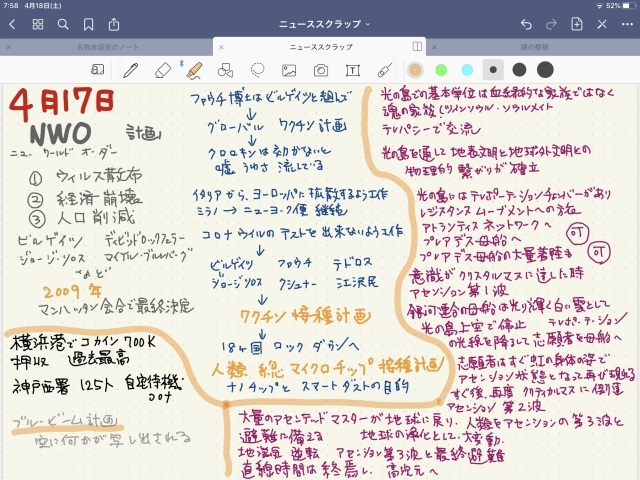 7:58 4月18日(土)
52%
ニューススクラップ
名称未設定のノート
ニューススクラップ
4月17日
NWO 計画
ニュー ワールド オーダー
① ウィルス散布
② 経済崩壊
③ 人口削減
ビルゲイツ デビッドロックフェラー
ジョージ・ソロス マイケル・ブルームバーグ
など
2009年
マンハッタン会合で最終決定
横浜港でコカイン 700K
押収 過去最高
神戸西署 125人 自宅待機
ブルービーム計画
空に何かが写し出される
ファウチ博士はビルゲイツと組んで
↓
グローバル ワクチン計画
↓
クロロキンは効かないと
嘘 うわさ 流している
イタリアから、ヨーロッパに拡散するよう工作
ミラノ → ニューヨーク便 継続
↓
コロナウイルのテストを出来ないよう工作
↓
ビルゲイツ ファウチ テドロス
ジョージソロス クシュナー 江沢民
↓
ワクチン接種計画
↓
ロックダウンへ
人類 総マイクロチップ接種計画
ナノチップと スマートダストの目的
光の島での基本単位は血縁的な家族ではなく
魂の家族（ツインソウル・ソウルメイト
テレパシーで交流
光の島を通して地表文明と地球外文明との
物理的 繋がりが確立
光の島にはテレポーテーションチェンバーがあり
レジスタンス ムーブメントへの
アトランティス ネットワークへ
プレアデス母船へ 可
プレアデス母船の大量着陸も 可
意識がクリスタルマスに達した時
アセンション 第1波
銀河連合の母船は光り輝く白い雲として
光の島上空で停止 テレポーテーション
の光線を降ろして志願者を母船へ
志願者はすぐ虹の身体の姿で
アセンション状態となって再び現れる
すぐ後、再度 クリティカルマスに到達
アセンション 第2波
大量のアセンデッドマスターが地球に戻り、人類をアセンションの第3波と
避難に備える 地球の浄化として、大変動
地磁気 逆転 アセンション第3波と最終避難
直線時間は終焉し、高次元へ